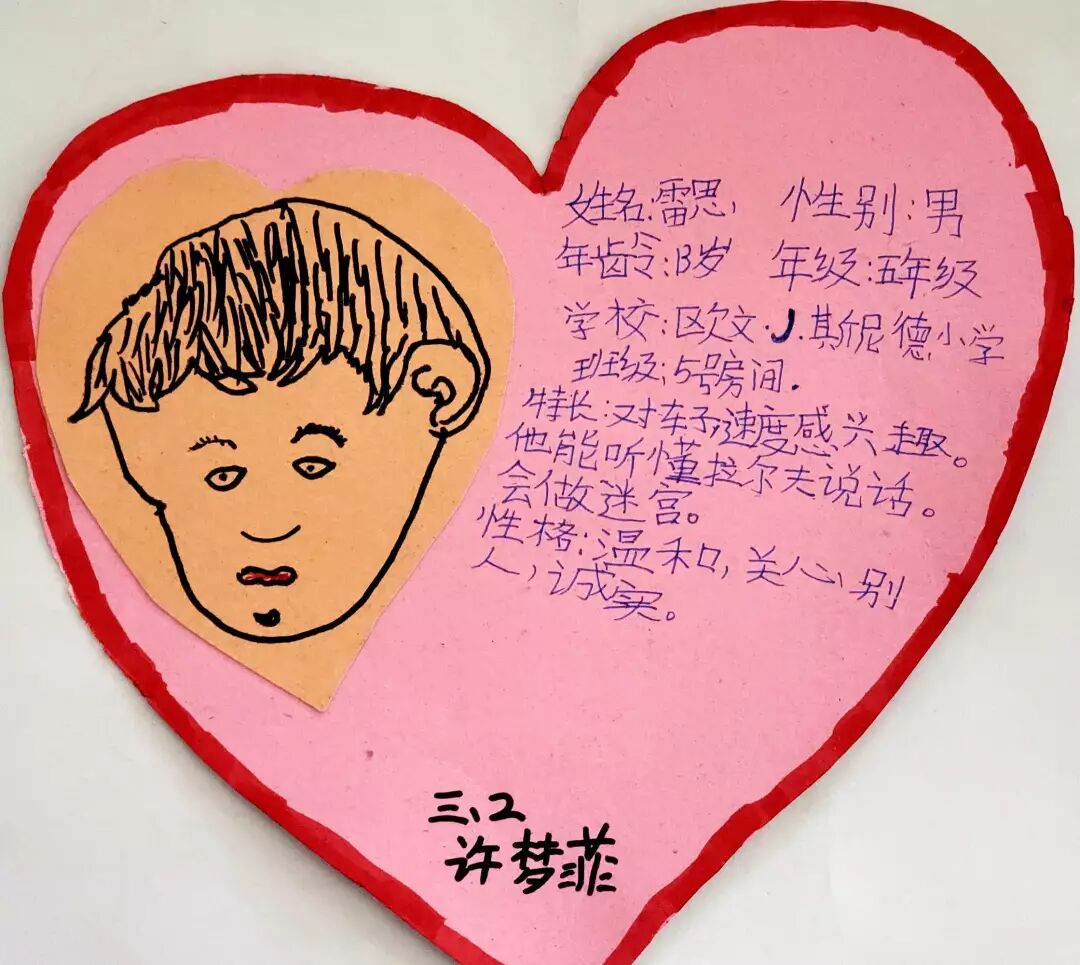 姓名:雷思 性别:男
年龄:13岁 年级:五年级
学校:区欠文·J.斯尼德小学
班级:5号房间.
特长:对车子,速度感兴趣。
他能听懂拉尔夫说话。
会做迷宫。
性格:温和,关心别
人,诚实。
三、2
许梦菲